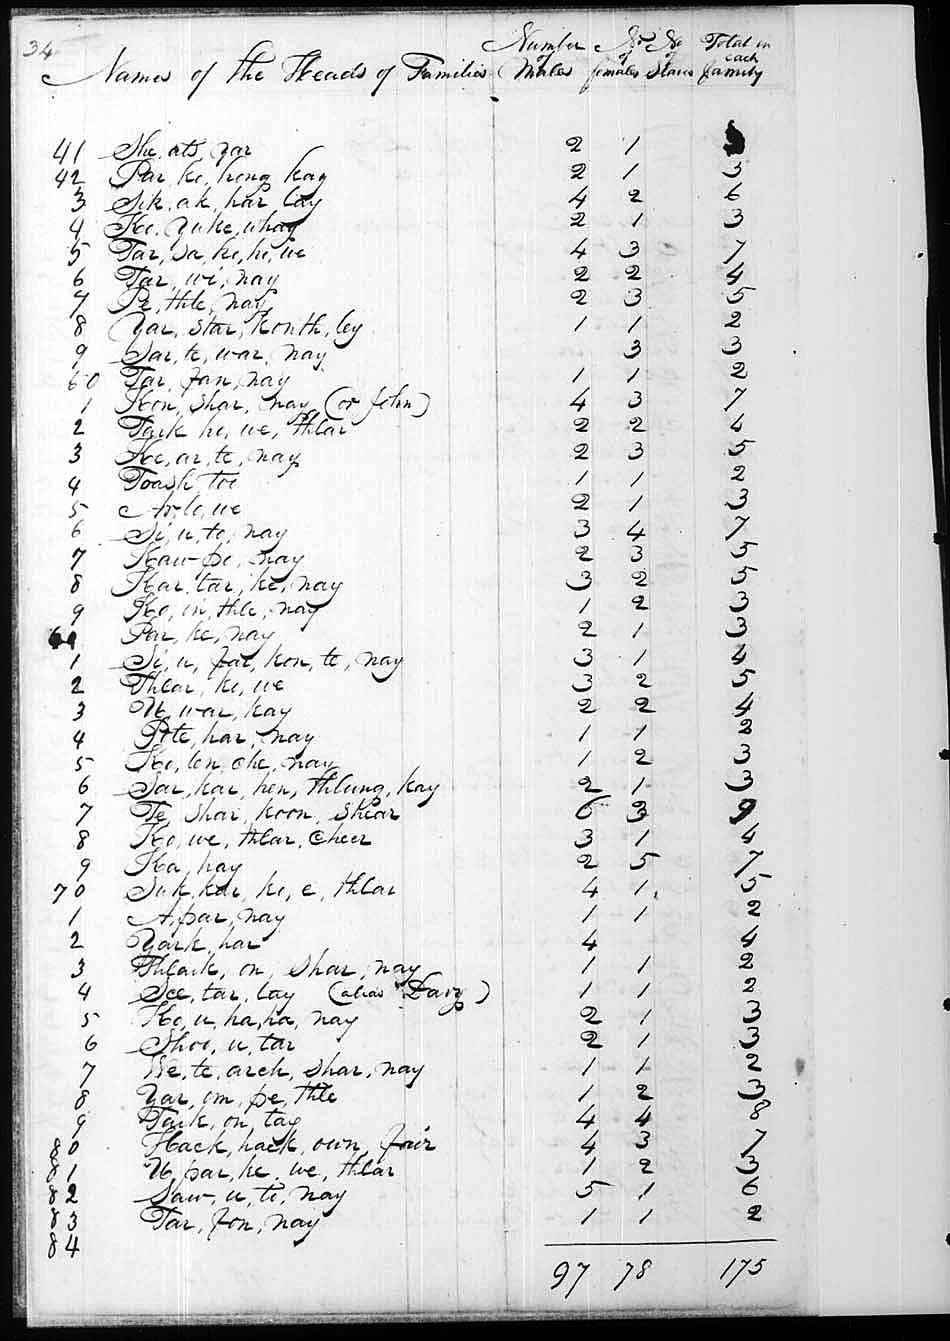 34
Names of the Heads of Families Number of Males No of females No Slaves Total in each family
41 She, ats, yar 2 1
42 Par, ke, heng, kay 2 1 3
3 Sik, ak, har, lay 4 2 6
4 Ko, yuke, whay 2 1 3
5 Tar, sa, ke, hi, we 4 3 7
6 Tar, wi, nay 2 2 4
7 Pe, thle, nay 2 3 5
8 Yar, star, konth, ley 1 1 2
9 Sar, te, war, nay 3 3
60 Tar, fan, nay 1 1 2
1 Kon, shar, nay (or John) 4 3 7
2 Tark he, we, thlar 2 2 4
3 Ke, ar, te, nay 2 3 5
4 Toash, toe 1 1 2
5 Ar, le, we 2 1 3
6 Si, u, te, nay 3 4 7
7 Kaw, po, nay 2 3 5
8 Kar, tar, ke, nay 3 2 5
9 Ko, in, thle, nay 1 2 3
Par, ke, nay 2 1 3
1 Si, u, far, kon, te, nay 3 1 4
2 Thlar, ke, we 3 2 5
3 U, war, kay 2 2 4
4 Pote, har, nay 1 1 2
5 Ko, lon, che, nay 1 2 3
6 Sar, kar, hen, thlung, kay 2 1 3
7 Te, shar, koon, shear 6 3 9
8 Ko, we, thlar, Cheer 3 1 4
9 Ka, hay 2 5 7
70 Suk, kar, ke, e, thlar 4 1 5
1 A, par, nay 1 1 2
2 Yark, har 4 4
3 Thlark, on, shar, nay 1 1 2
4 See, tar, lay (alias Davy) 1 1 2
5 Ko, u, ha, ha, nay 2 1 3
6 Shoo, u, tar 2 1 3
7 We, te, arch, shar, nay 1 1 2
8 Yar, om, pe, thle 1 2 3
9 Tark, on, tay 4 4 8
80 Hack, hack, own, fair 4 3 7
81 U, par, ke, we, thlar 1 2 3
82 Saw, u, te, nay 5 1 6
83 Tar, fon, nay 1 1 2
84
97 78 175